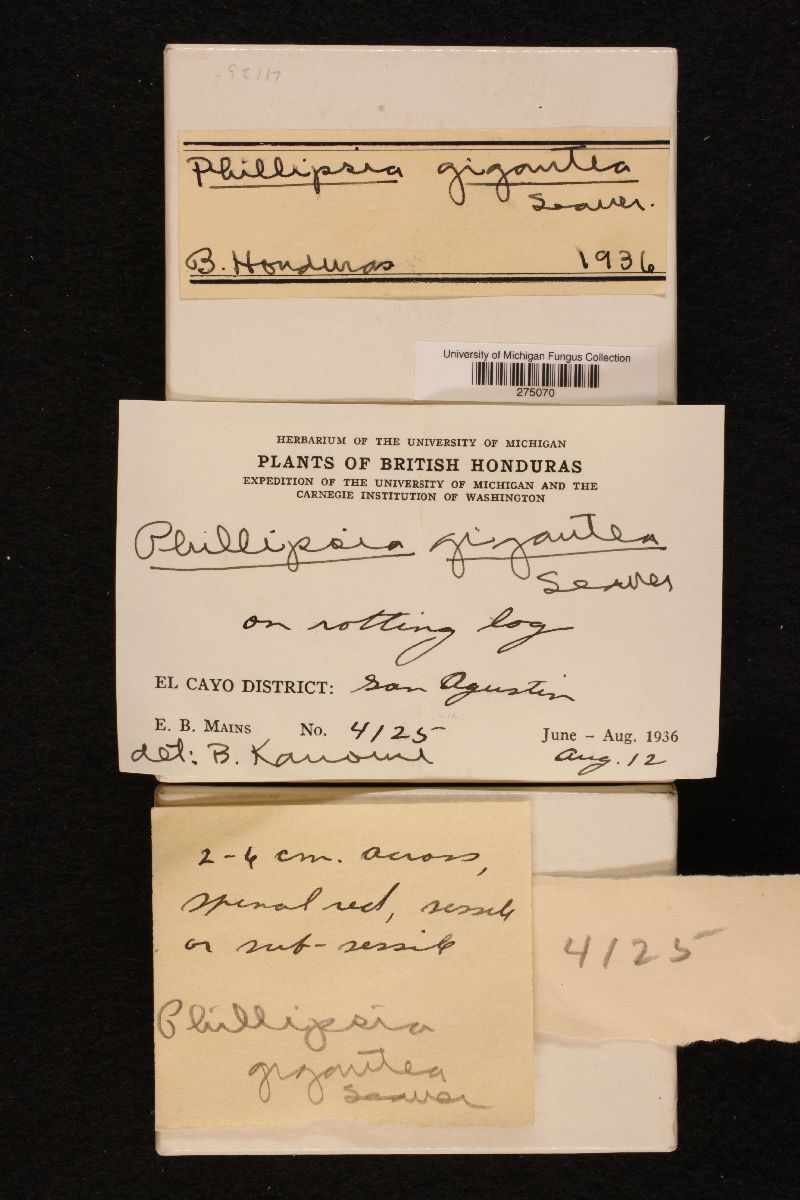 4125-
Phillipsia gigantea
Seaver.
B. Honduras 1936
University of Michigan Fungus Collection
275070
HERBARIUM OF THE UNIVERSITY OF MICHIGAN
PLANTS OF BRITISH HONDURAS
EXPEDITION OF THE UNIVERSITY OF MICHIGAN AND THE
CARNEGIE INSTITUTION OF WASHINGTON
Phillipsia gigantea
Seaver
on rotting log
EL CAYO DISTRICT: San Agustin
E. B. MAINS No. 4125 June - Aug. 1936
det: B. Kanouse Aug. 12
2-6 cm. across,
red, sessile
or sub-sessile
4125
Phillipsia
gigantea
Seaver